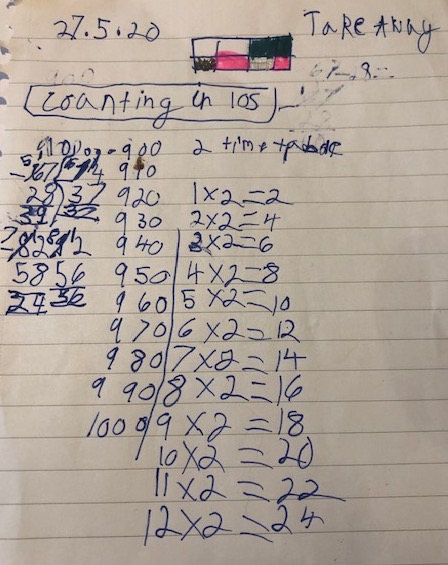 27.5.20 Take Away
Counting in 10s
900 2 time table
910
920 1×2=2
930 2×2=4
940 3×2=6
950 4×2=8
960 5×2=10
970 6×2=12
980 7×2=14
990 8×2=16
1000 9×2=18
10×2=20
11×2=22
12×2=24
28 37
58 56
24 36